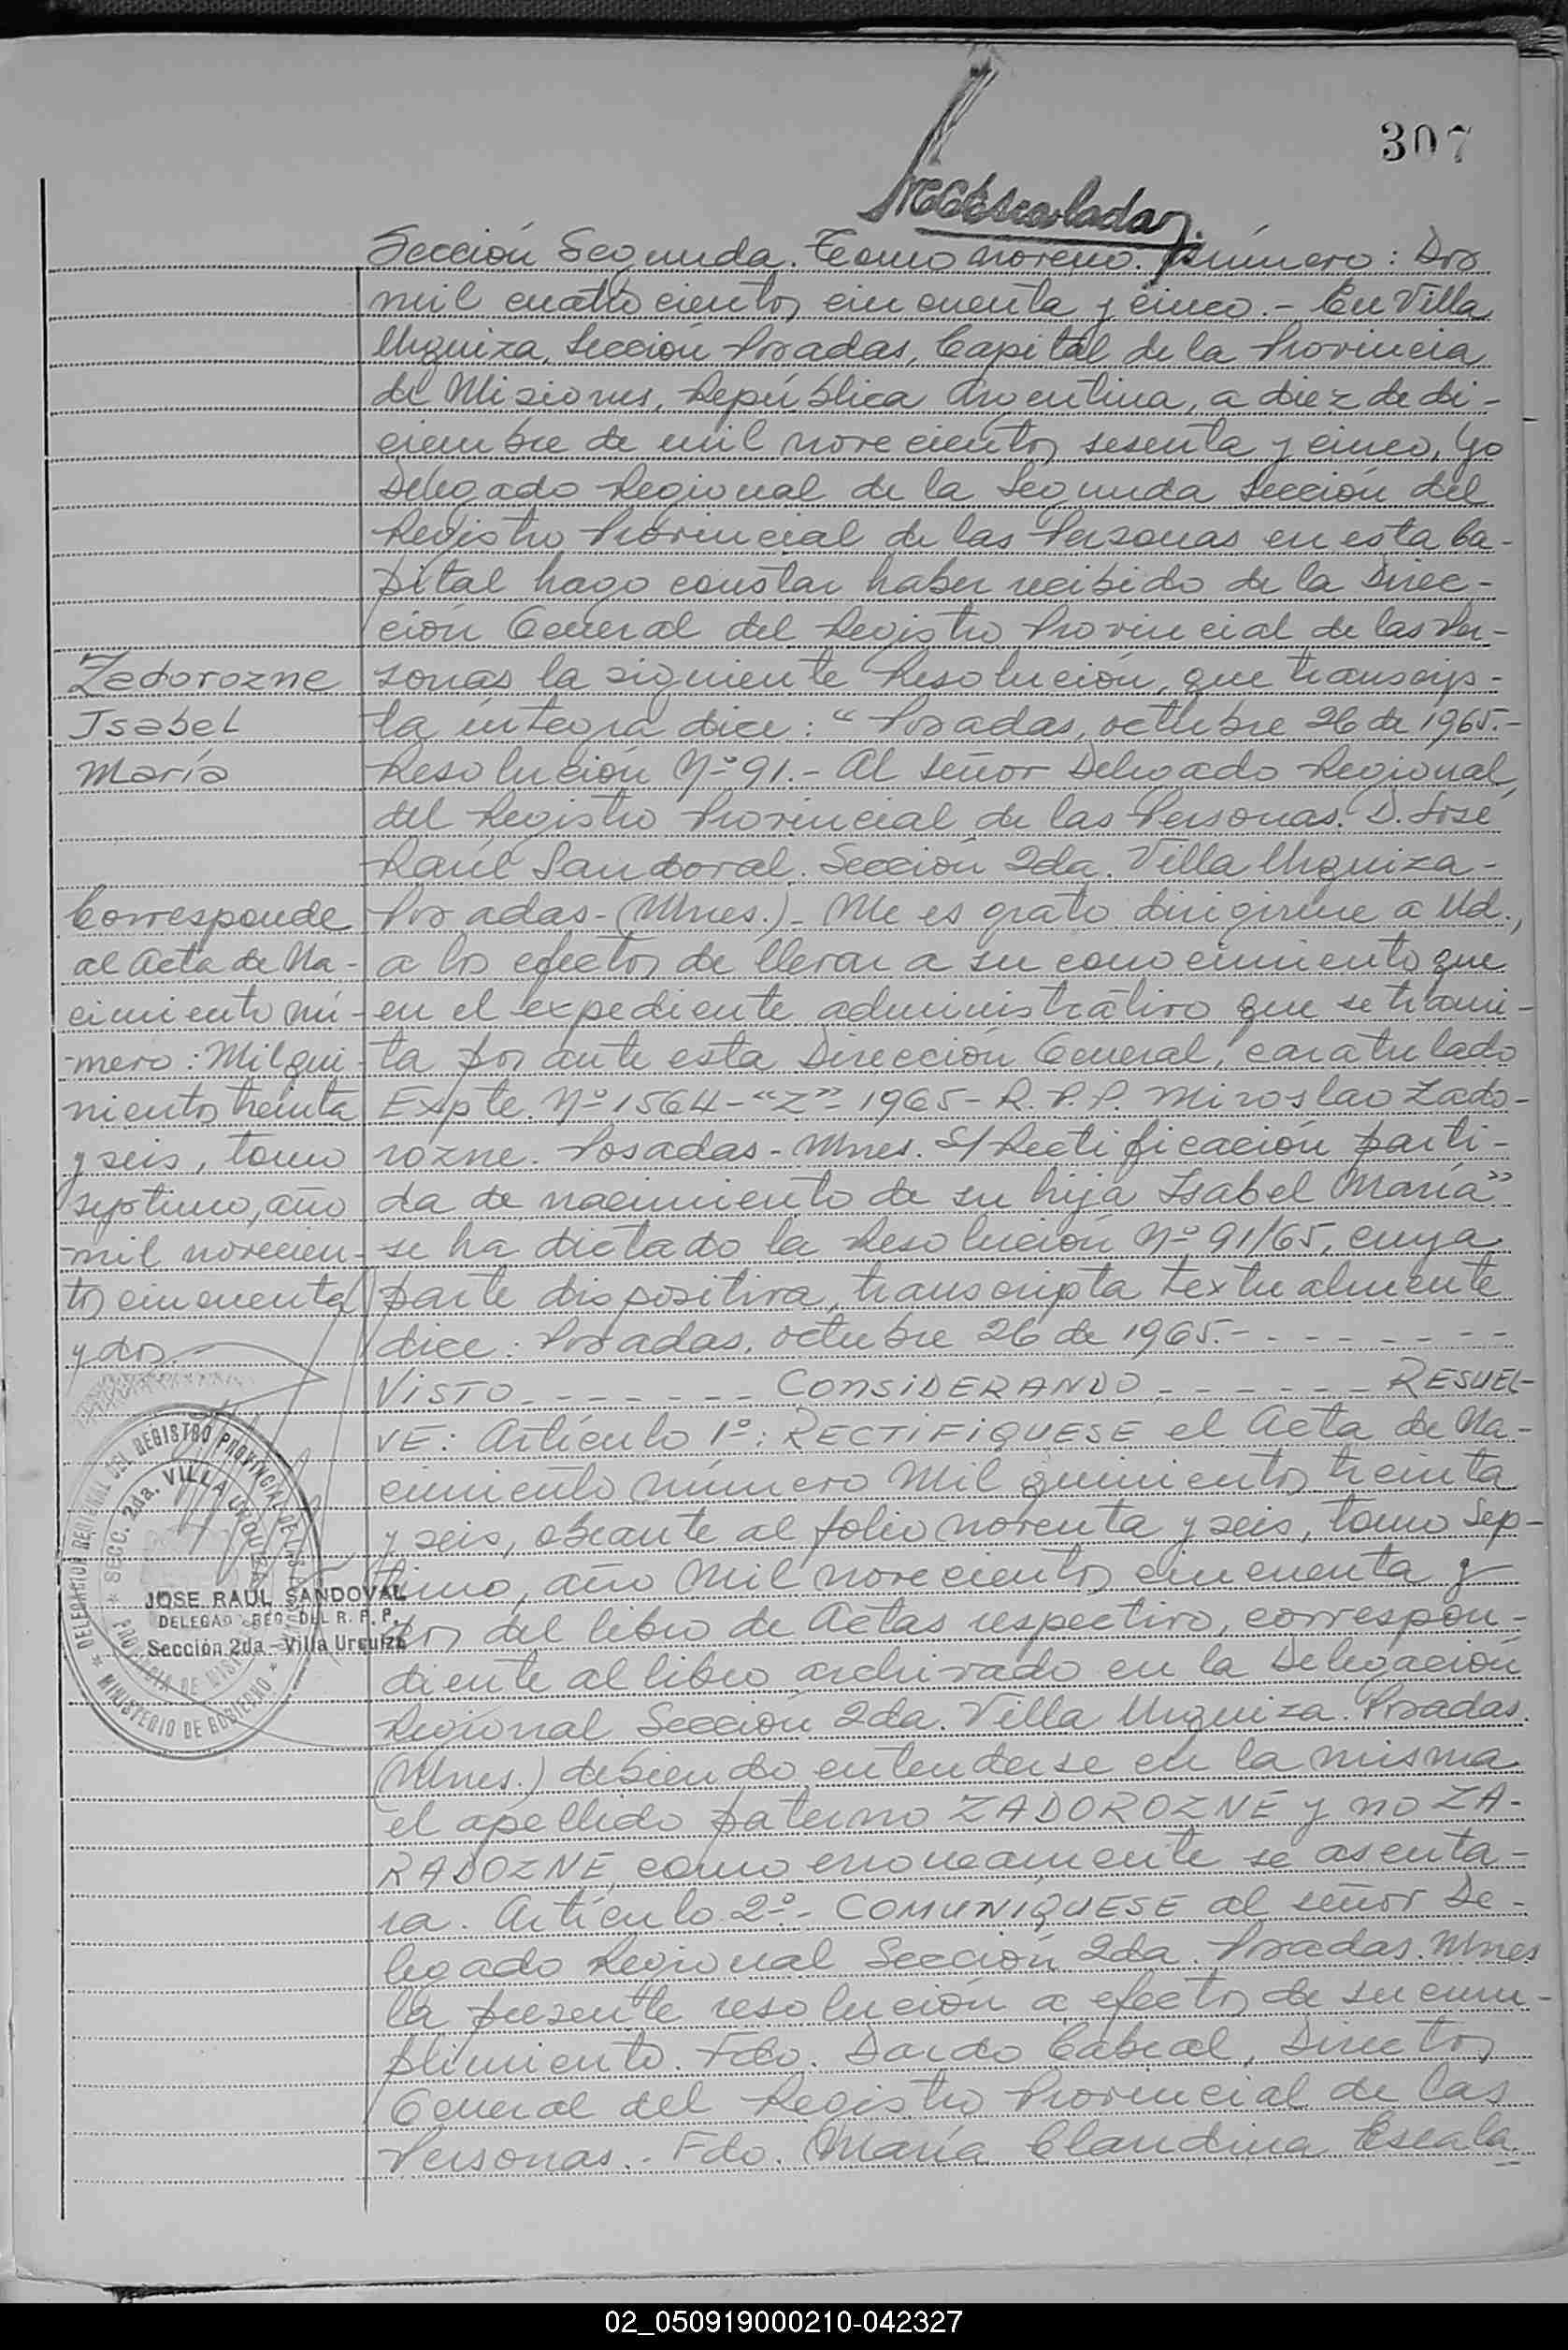 307
Sección Segunda. Tomo noveno. Número: Dos
mil cuatrocientos cincuenta y cinco.- En Villa
Urquiza, Sección Posadas, Capital de la Provincia
de Misiones, República Argentina, a diez de di-
ciembre de mil novecientos sesenta y cinco, yo
Delegado Regional de la Segunda Sección del
Registro Provincial de las Personas en esta Ca-
pital hago constar haber recibido de la Direc-
ción General del Registro Provincial de las Per-
sonas la siguiente Resolución, que transcrip-
ta íntegra dice: "Posadas, octubre 26 de 1965.-
Resolución Nº 91.- Al señor Delegado Regional
del Registro Provincial de las Personas. D. José
Raúl Sandoval. Sección 2da. Villa Urquiza-
Posadas-(Mnes.)- Me es grato dirigirme a Ud.,
a los efectos de llevar a su conocimiento que
en el expediente administrativo que se trami-
ta por ante esta Dirección General, caratulado
Expte. Nº 1564-"Z"-1965- R.P.P. Miroslao Zado-
rozne. Posadas-Mnes. S/Rectificación parti-
da de nacimiento de su hija Isabel María"
se ha dictado la Resolución Nº 91/65, cuya
parte dispositiva, transcripta textualmente
dice: Posadas, octubre 26 de 1965.- - - - - - - - -
VISTO - - - - - - CONSIDERANDO - - - - - - RESUEL-
VE: Artículo 1º: RECTIFIQUESE el Acta de Na-
cimiento número Mil quinientos treinta
y seis, obrante al folio noventa y seis, tomo Sép-
timo, año Mil novecientos cincuenta y
dos del libro de Actas respectivo, correspon-
diente al libro archivado en la Delegación
Regional Sección 2da. Villa Urquiza. Posadas.
(Mnes.) debiendo entenderse en la misma
el apellido paterno ZADOROZNE y no ZA-
RADOZNE, como erroneamente se asenta-
ra. Artículo 2º- COMUNIQUESE al señor De-
legado Regional Sección 2da. Posadas. Mnes
la presente resolución a efectos de su cum-
plimiento. Fdo. Dardo Cabral, Director
General del Registro Provincial de las
Personas.- Fdo. María Claudina Escala
Zadorozne
Isabel
María
Corresponde
al Acta de Na-
cimiento nú-
mero: Mil qui-
nientos treinta
y seis, tomo
séptimo, año
mil novecien-
tos cincuenta
y dos.-
DELEGACION REGIONAL DEL REGISTRO PROVINCIAL DE LAS
SECC. 2da. VILLA URQUIZA
PROVINCIA DE MISIONES
MINISTERIO DE GOBIERNO
JOSE RAUL SANDOVAL
DELEGADO REG. DEL R. P. P.
Sección 2da.-Villa Urquiza
02_050919000210-042327